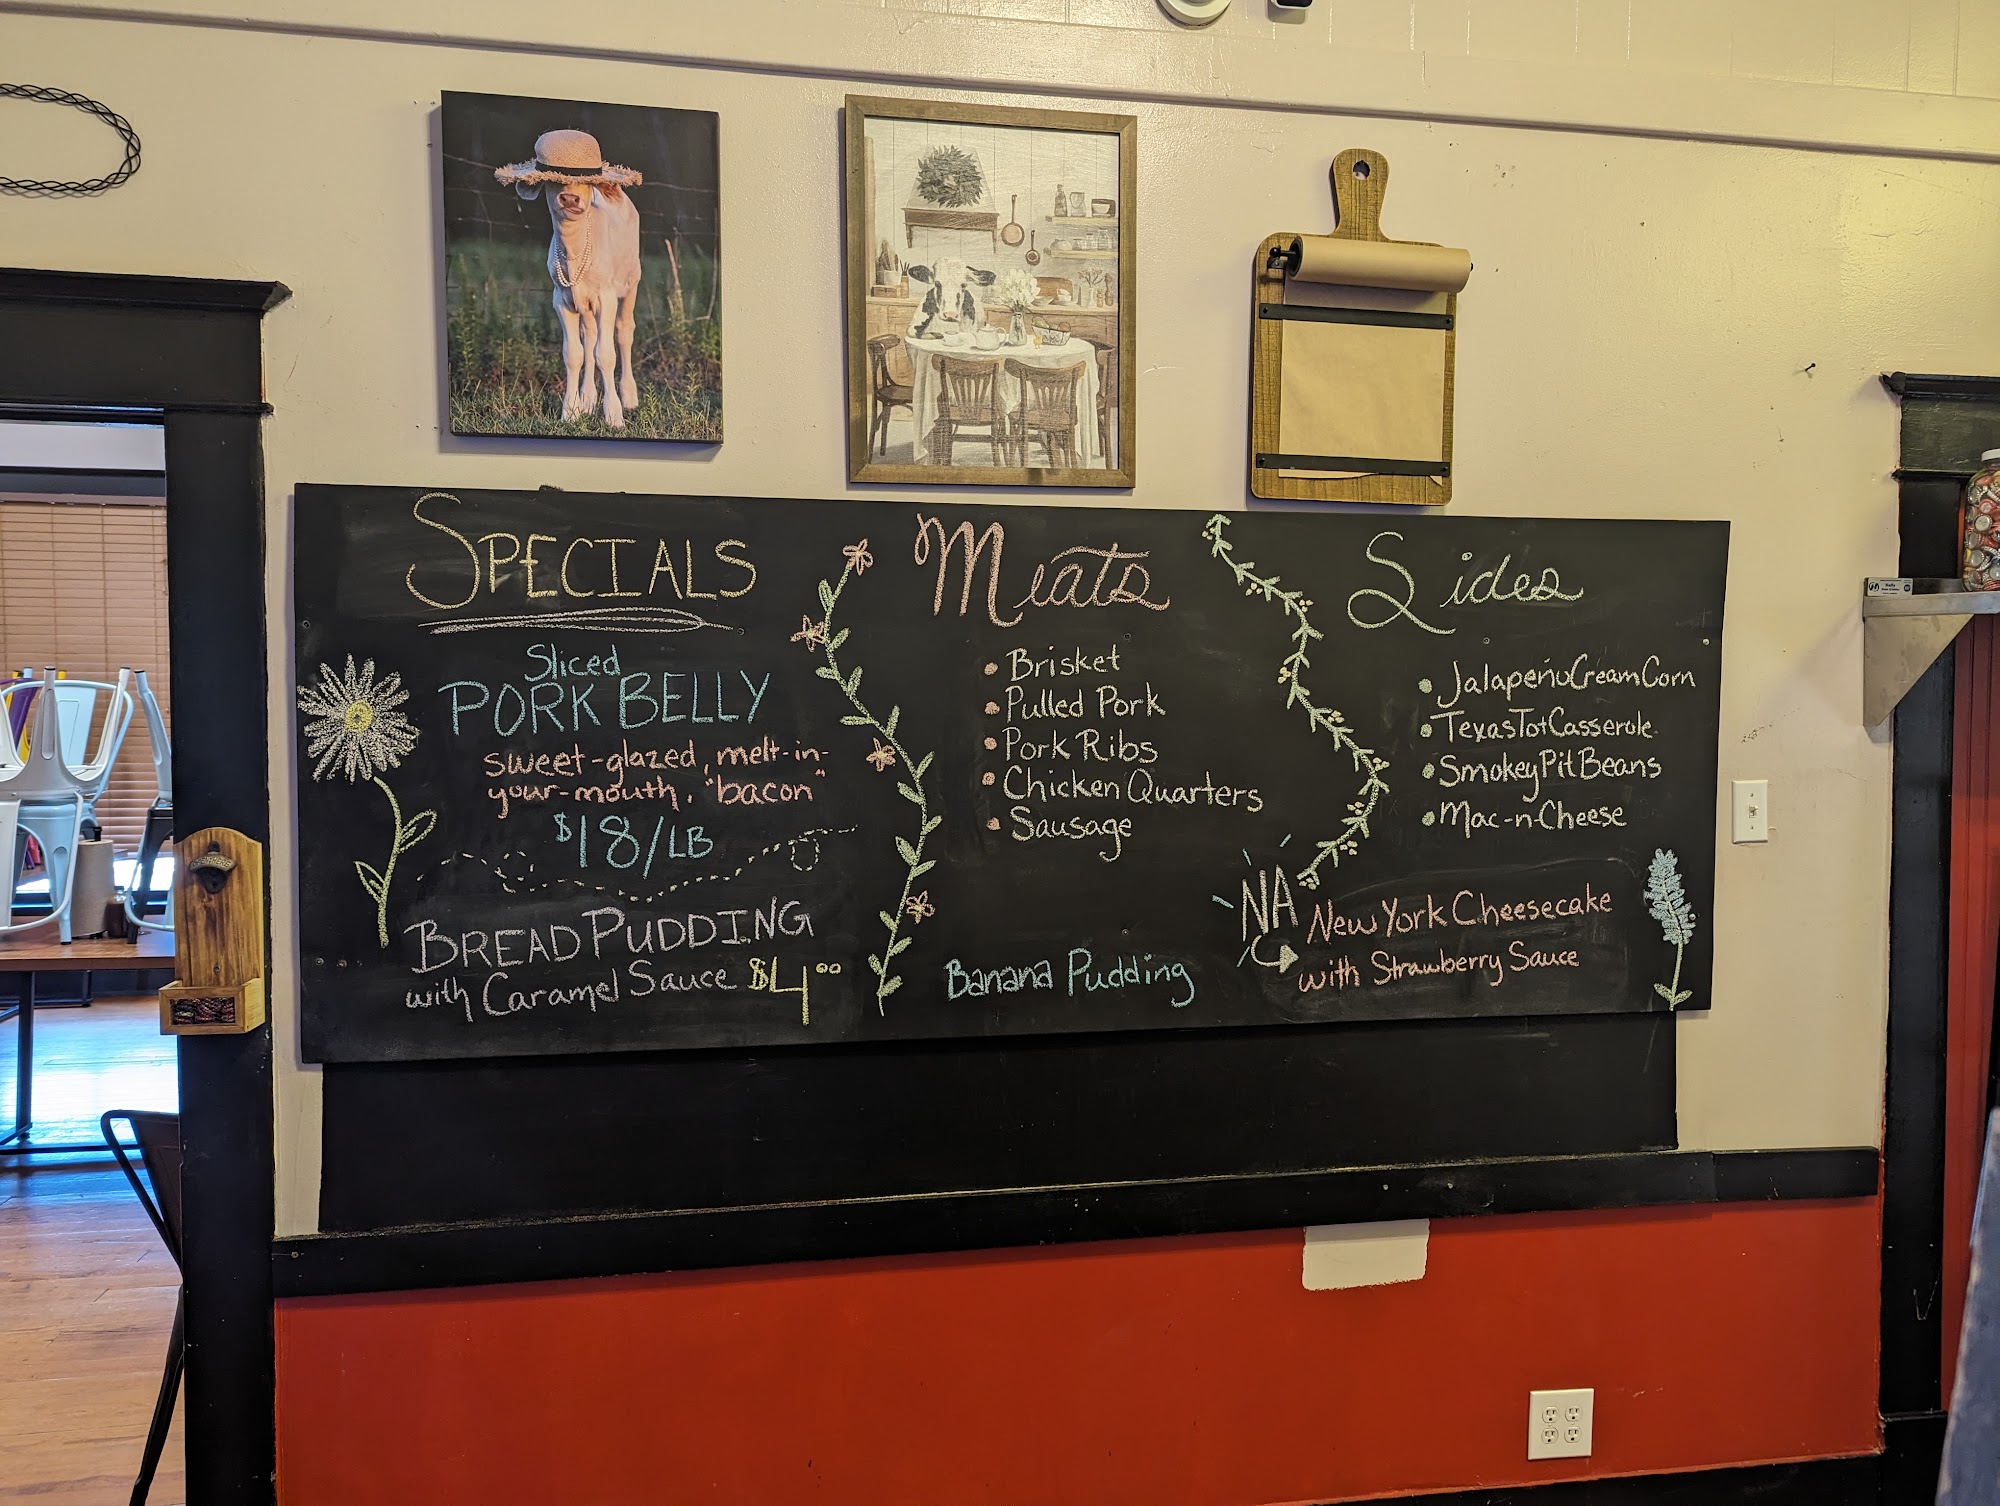 SPECIALS
Sliced
PORK BELLY
sweet-glazed, melt-in-
your-mouth, "bacon"
$18/LB
BREAD PUDDING
with Caramel Sauce $4⁰⁰
Meats
• Brisket
• Pulled Pork
• Pork Ribs
• Chicken Quarters
• Sausage
Banana Pudding
Sides
• Jalapeño Cream Corn
• Texas Tot Casserole
• Smokey Pit Beans
• Mac-n-Cheese
NA
New York Cheesecake
with Strawberry Sauce